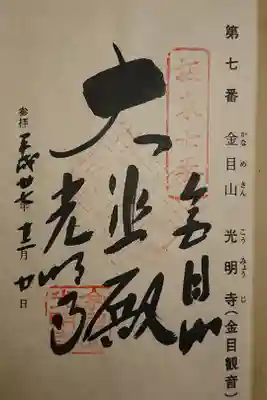 第七番 金目山 光明寺(金目観音)
かな め さん こう みょう じ
坂東七番
金目山
大悲殿
光明寺
参拝 平成廿七年 十二月 廿日